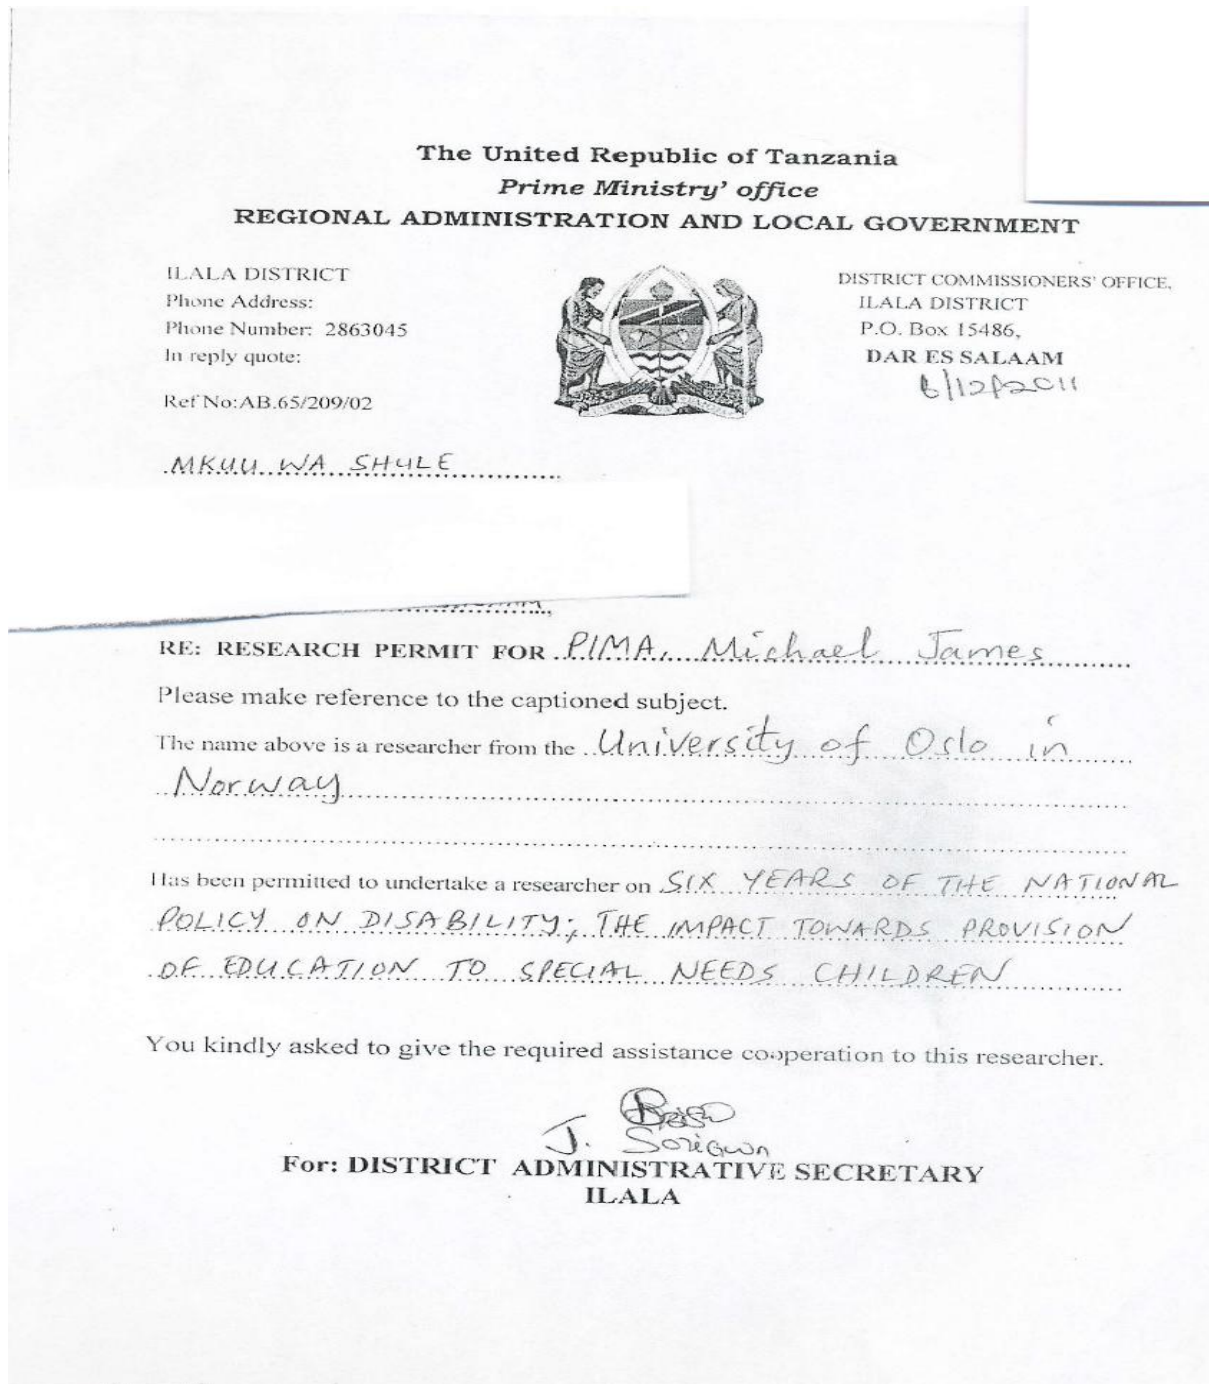 The United Republic of Tanzania
Prime Ministry' office
REGIONAL ADMINISTRATION AND LOCAL GOVERNMENT
ILALA DISTRICT
Phone Address:
Phone Number: 2863045
In reply quote:
Ref No:AB.65/209/02
DISTRICT COMMISSIONERS' OFFICE,
ILALA DISTRICT
P.O. Box 15486,
DAR ES SALAAM
6/12/2011
MKUU WA SHULE
RE: RESEARCH PERMIT FOR PIMA, Michael James
Please make reference to the captioned subject.
The name above is a researcher from the University of Oslo in
Norway
Has been permitted to undertake a researcher on SIX YEARS OF THE NATIONAL
POLICY ON DISABILITY; THE IMPACT TOWARDS PROVISION
OF EDUCATION TO SPECIAL NEEDS CHILDREN
You kindly asked to give the required assistance cooperation to this researcher.
J.
For: DISTRICT ADMINISTRATIVE SECRETARY
ILALA